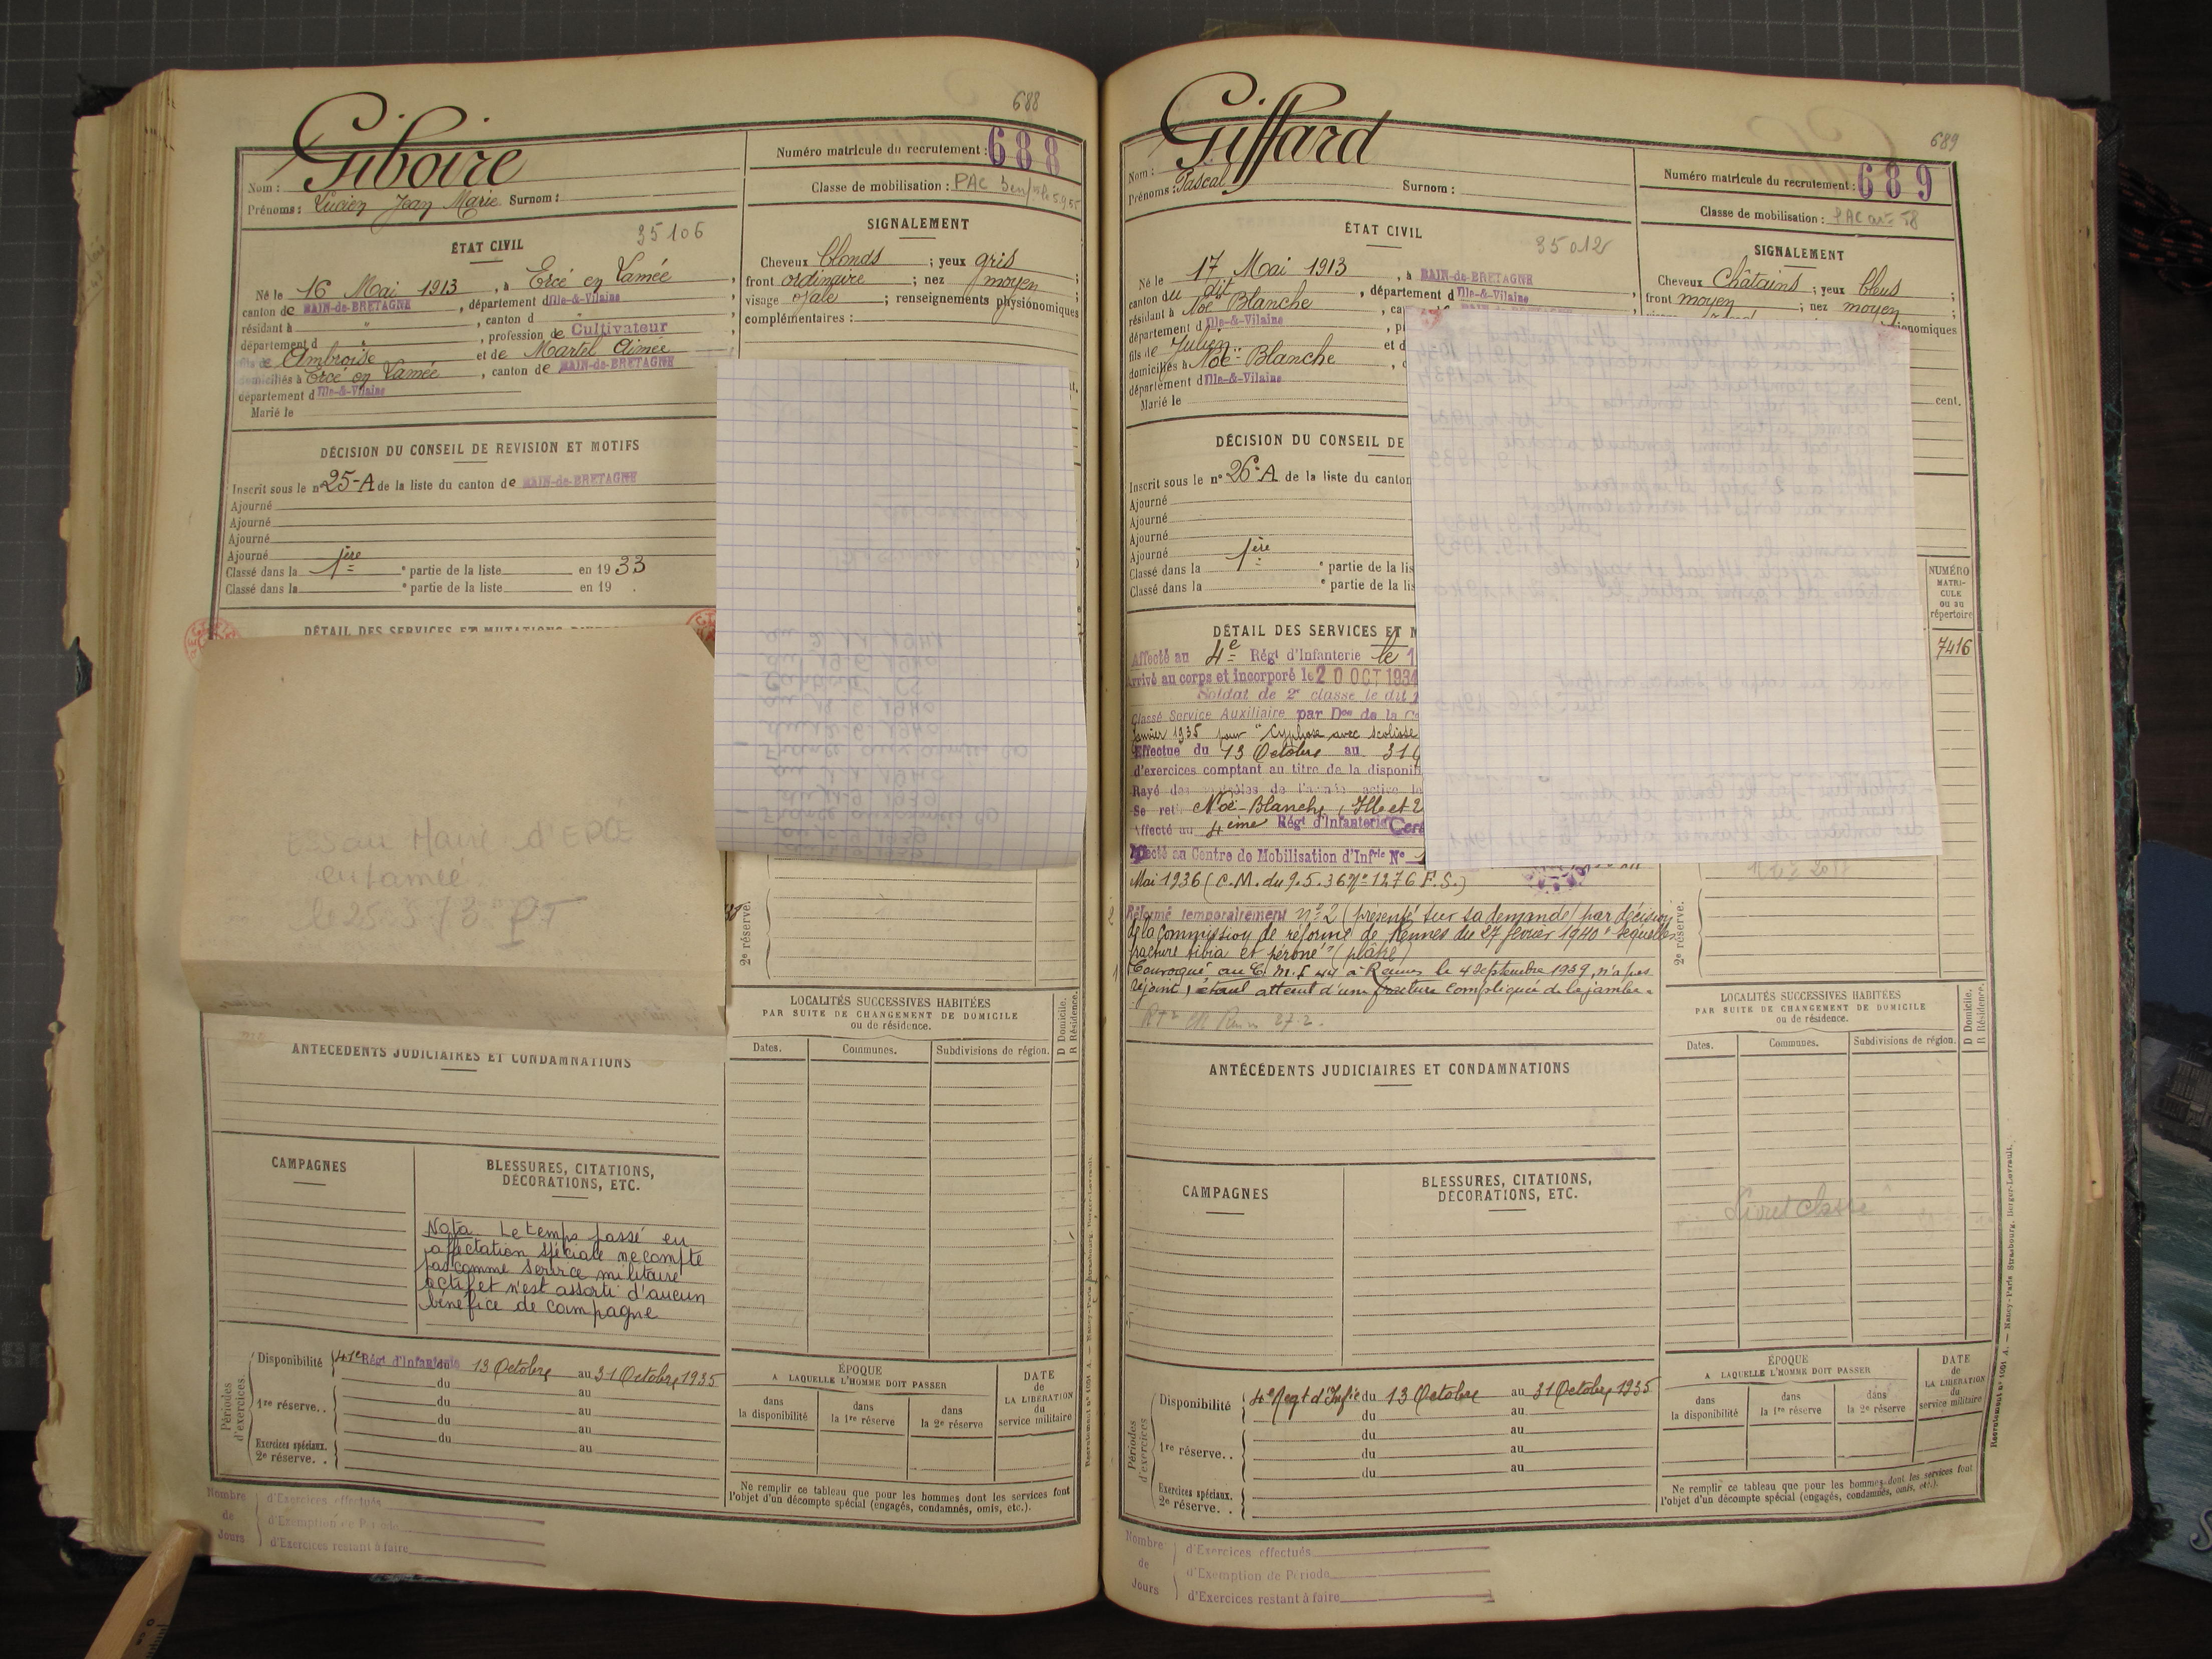 688
Giboire
Nom :
Prénoms : Lucien Jean Marie Surnom :
Numéro matricule du recrutement : 688
Classe de mobilisation : PAC
ÉTAT CIVIL
35106
Né le 16 Mai 1913, à Ercé en Lamée,
canton de BAIN-de-BRETAGNE, département d'Ille-&-Vilaine
résidant à " , canton d "
département d " , profession de Cultivateur
fils de Ambroise et de Martel Aimée
domiciliés à Ercé en Lamée, canton de BAIN-de-BRETAGNE
département d'Ille-&-Vilaine
Marié le
SIGNALEMENT
Cheveux blonds ; yeux gris ;
front ordinaire ; nez moyen ;
visage ovale ; renseignements physionomiques
complémentaires :
DÉCISION DU CONSEIL DE REVISION ET MOTIFS
Inscrit sous le n° 25-A de la liste du canton de BAIN-de-BRETAGNE
Ajourné
Ajourné
Ajourné
Ajourné
Classé dans la 1ère e partie de la liste en 1933
Classé dans la e partie de la liste en 19 .
DÉTAIL DES SERVICES ET MUTATIONS
au Maire d'
en Lamée
le 25.3.73
2e réserve.
LOCALITÉS SUCCESSIVES HABITÉES
PAR SUITE DE CHANGEMENT DE DOMICILE
ou de résidence.
D Domicile.
R Résidence.
Dates. Communes. Subdivisions de région.
ANTÉCÉDENTS JUDICIAIRES ET CONDAMNATIONS
CAMPAGNES
BLESSURES, CITATIONS,
DÉCORATIONS, ETC.
Nota Le temps passé en
affectation spéciale ne compte
pas comme service militaire
actif et n'est assorti d'aucun
bénéfice de campagne
Périodes d'exercices.
Disponibilité 41e Régt d'Infanterie du 13 Octobre au 31 Octobre 1935
du au
1re réserve. . du au
du au
Exercices spéciaux. du au
2e réserve. .
ÉPOQUE
A LAQUELLE L'HOMME DOIT PASSER
dans la disponibilité
dans la 1re réserve
dans la 2e réserve
DATE de LA LIBÉRATION du service militaire
Ne remplir ce tableau que pour les hommes dont les services font
l'objet d'un décompte spécial (engagés, condamnés, omis, etc.).
Nombre de Jours
d'Exercices effectués
d'Exemption de Période
d'Exercices restant à faire
689
Giffard
Nom :
Prénoms : Pascal Surnom :
Numéro matricule du recrutement : 689
Classe de mobilisation : PAC
ÉTAT CIVIL
35012
Né le 17 Mai 1913, à BAIN-de-BRETAGNE
canton du dit, département d'Ille-&-Vilaine
résidant à Noë Blanche
département d'Ille-&-Vilaine
fils de Julien et d
domiciliés à Noë-Blanche
département d'Ille-&-Vilaine
Marié le
SIGNALEMENT
Cheveux Châtains ; yeux bleus ;
front moyen ; nez moyen ;
cent.
DÉCISION DU CONSEIL DE
Inscrit sous le n° 26-A de la liste du canton
Ajourné
Ajourné
Ajourné
Ajourné
Classé dans la 1ère e partie de la lis
Classé dans la e partie de la lis
NUMÉRO MATRICULE ou au répertoire
7416
DÉTAIL DES SERVICES ET M
Affecté au 4e Régt d'Infanterie le 1
Arrivé au corps et incorporé le 20 OCT 1934
Soldat de 2e classe le dit
Classé Service Auxiliaire par Don de la
janvier 1935 pour "Cyphose avec scoliose
Effectue du 13 Octobre au 31
d'exercices comptant au titre de la disponib
Rayé des contrôles de l'armée active le
Se ret. Noë-Blanche, (Ille et
Affecté au 4ème Régt d'Infanterie
Affecté au Centre de Mobilisation d'Infrie N°
Mai 1936 (C.M. du 9.5.36 N° 1276 F.S.)
Réformé temporairement n°2 (présenté sur sa demande) par décision
de la Commission de réforme de Rennes du 27 février 1940 "séquelles
fracture tibia et péroné" (plâtre)
Convoqué au C.M.I. 44 à Rennes le 4 Septembre 1939, n'a pas
rejoint, étant atteint d'une fracture compliquée de la jambe.
2e réserve.
LOCALITÉS SUCCESSIVES HABITÉES
PAR SUITE DE CHANGEMENT DE DOMICILE
ou de résidence.
D Domicile.
R Résidence.
Dates. Communes. Subdivisions de région.
Livret classé
ANTÉCÉDENTS JUDICIAIRES ET CONDAMNATIONS
CAMPAGNES
BLESSURES, CITATIONS,
DÉCORATIONS, ETC.
Périodes d'exercices
Disponibilité 4e Regt d'Infie du 13 Octobre au 31 Octobre 1935
du au
1re réserve. . du au
du au
Exercices spéciaux. du au
2e réserve. .
ÉPOQUE
A LAQUELLE L'HOMME DOIT PASSER
dans la disponibilité
dans la 1re réserve
dans la 2e réserve
DATE de LA LIBÉRATION du service militaire
Ne remplir ce tableau que pour les hommes dont les services font
l'objet d'un décompte spécial (engagés, condamnés, omis, etc.).
Recrutement n° 1091 A. — Nancy-Paris Strasbourg, Berger-Levrault.
Nombre de Jours
d'Exercices effectués
d'Exemption de Période
d'Exercices restant à faire